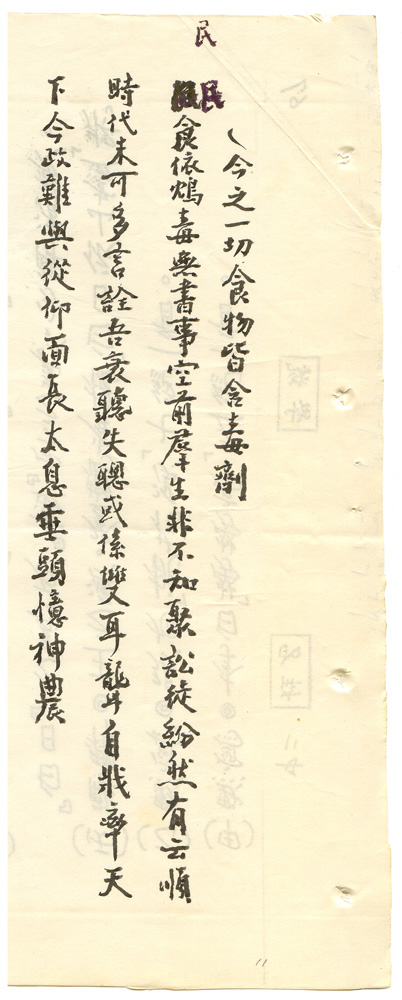 民
(今之一切食物皆含毒劑
民食依鴆毒無書事空前群生非不知聚訟徒紛然有云順
時代未可多言詮吾衰聽失聰或係雙耳聾自戕率天
下今政難與從仰面長太息垂頭憶神農